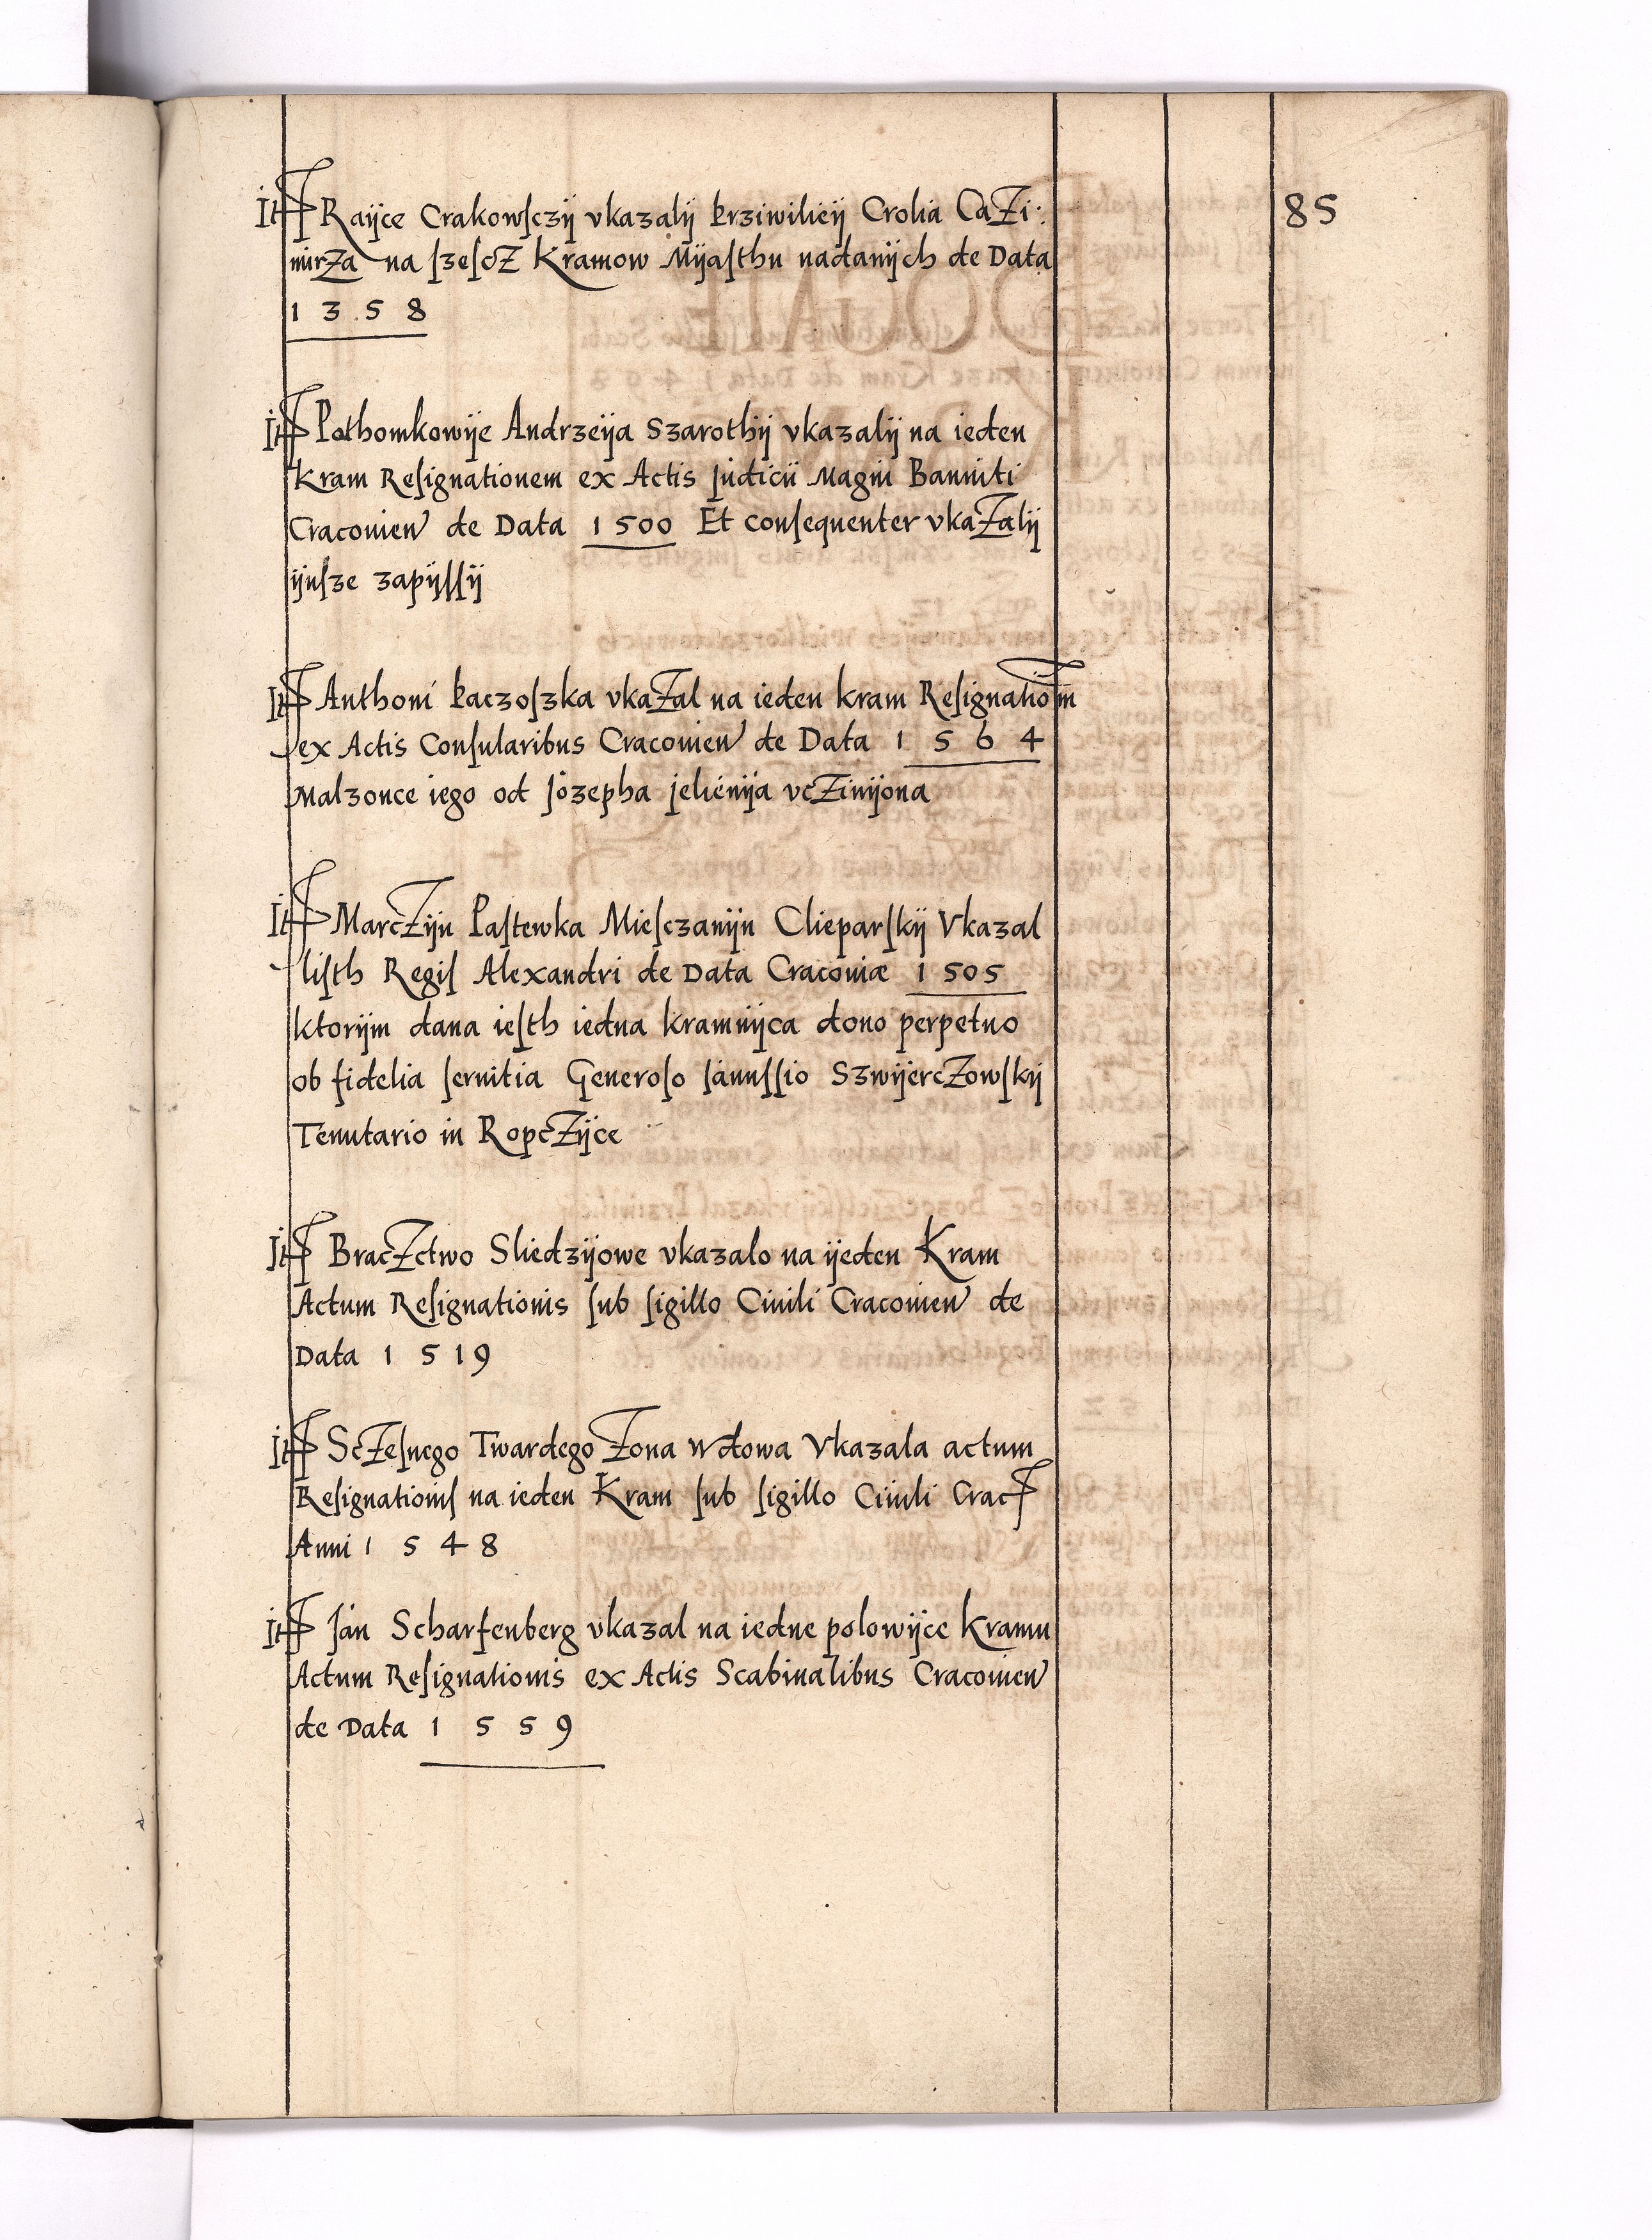 85
It Rayce Crakowſczij vkazalij przivilieij Crolia CaZi:
mirZa na ſzeſcZ Kramow Mijaſthu nadanijch de Data
1358
It Pothomkowije Andrzeija Szarothij vkazalij na ieden
kram Reſignationem ex Actis Judicii Magni Banniti
Cracouien de Data 1500 Et conſequenter vkaZalij
ijnſze zapijſſij
It Anthoni paczoſzka vkaZal na ieden kram Reſignatiom
ex Actis Conſularibus Cracouien de Data 1564
Malzonce iego od Jozepha jelienija vcZinijona
It MarcZijn Paſtewka Mieſczanijn Clieparſkij Vkazal
liſth Regiſ Alexandri de Data Cracouiæ 1505
ktorijm dana ieſth iedna kramnijca dono perpetuo
ob fidelia ſeruitia Generoſo Januſſio SzwijercZowſkij
Tenutario in RopcZijce
It BracZctwo Sliedzijowe vkazalo na ijeden Kram
Actum Reſignationis ſub ſigillo Ciuili Cracouien de
Data 1519
It ScZeſnego Twardego Zona wdowa Vkazala actum
Reſignationiſ na ieden Kram ſub ſigillo Ciuili Crac
Anni 1548
It Jan Scharfenberg vkazal na iedne polowijce kramu
Actum Reſignationis ex Actis Scabinalibus Cracouien
de Data 1559